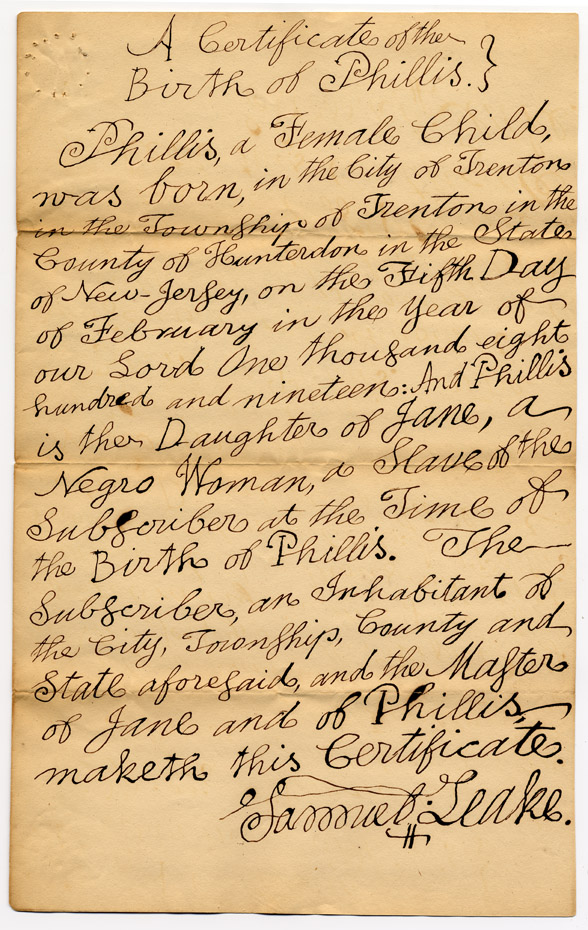 A Certificate of the
Birth of Phillis. }
Phillis, a Female Child,
was born, in the City of Trenton
in the Township of Trenton in the
County of Hunterdon in the State
of New-Jersey, on the Fifth Day
of February in the Year of
our Lord One thousand eight
hundred and nineteen: And Phillis
is the Daughter of Jane, a
Negro Woman, a Slave of the
Subscriber at the Time of
the Birth of Phillis. The
Subscriber, an Inhabitant of
the City, Township, County and
State aforesaid, and the Master
of Jane and of Phillis,
maketh this Certificate.
Samuel Leake.